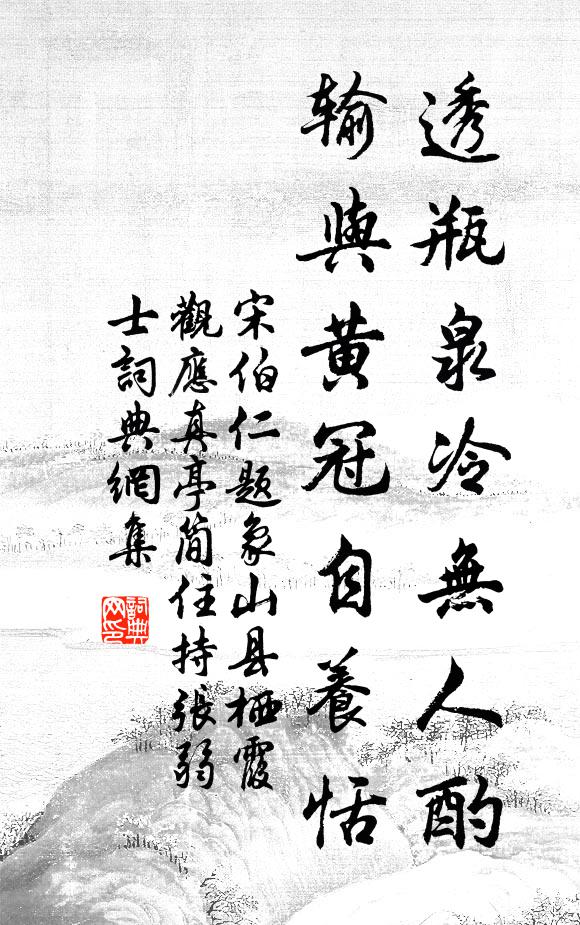 透瓶泉冷無人酌
輸與黃冠自養恬
宋伯仁题象山县栖霞
觀應真亭简住持張弱
士詞典網集
詞典网印